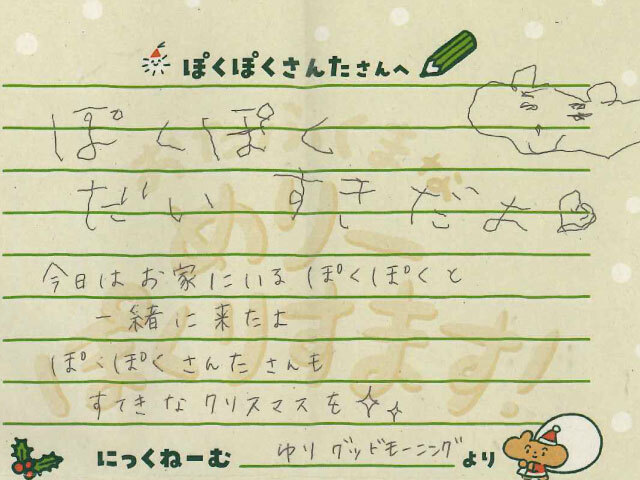 ぽくぽくさんたさんへ
ぽくぽく
だいすきだよ
今日はお家にいるぽくぽくと
一緒に来たよ
ぽくぽくさんたさんも
すてきなクリスマスを
にっくねーむ ゆりグッドモーニング より
めりー
くりすます!